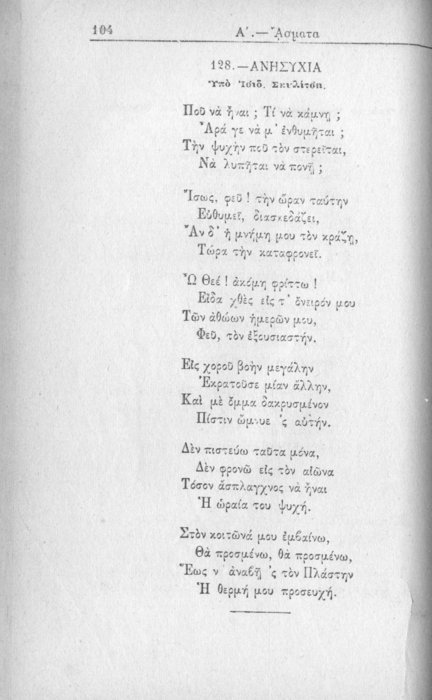 104
Α΄.— ᾌσματα
128.—ΑΝΗΣΥΧΙΑ
Ὑπὸ Ἰσιδ. Σκυλίτση.
Ποῦ νὰ ἦναι ; Τί νὰ κάμνῃ ;
Ἆρά γε νὰ μ᾿ ἐνθυμῆται ;
Τὴν ψυχὴν ποῦ τὸν στερεῖται,
Νὰ λυπῆται νὰ πονῇ ;
Ἴσως, φεῦ ! τὴν ὥραν ταύτην
Εὐθυμεῖ, διασκεδάζει,
Ἂν δ᾿ ἡ μνήμη μου τὸν κράζῃ,
Τώρα τὴν καταφρονεῖ.
Ὢ Θεέ ! ἀκόμη φρίττω !
Εἶδα χθὲς εἰς τ᾿ ὄνειρόν μου
Τῶν ἀθώων ἡμερῶν μου,
Φεῦ, τὸν ἐξουσιαστήν.
Εἰς χοροῦ βοὴν μεγάλην
Ἐκρατοῦσε μίαν ἄλλην,
Καὶ μὲ ὄμμα δακρυσμένον
Πίστιν ὤμνυε ᾿ς αὐτήν.
Δὲν πιστεύω ταῦτα μόνα,
Δὲν φρονῶ εἰς τὸν αἰῶνα
Τόσον ἄσπλαγχνος νὰ ἦναι
Ἡ ὡραία του ψυχή.
Στὸν κοιτῶνά μου ἐμβαίνω,
Θὰ προσμένω, θὰ προσμένω,
Ἕως ν᾿ ἀναβῇ ᾿ς τὸν Πλάστην
Ἡ θερμή μου προσευχή.